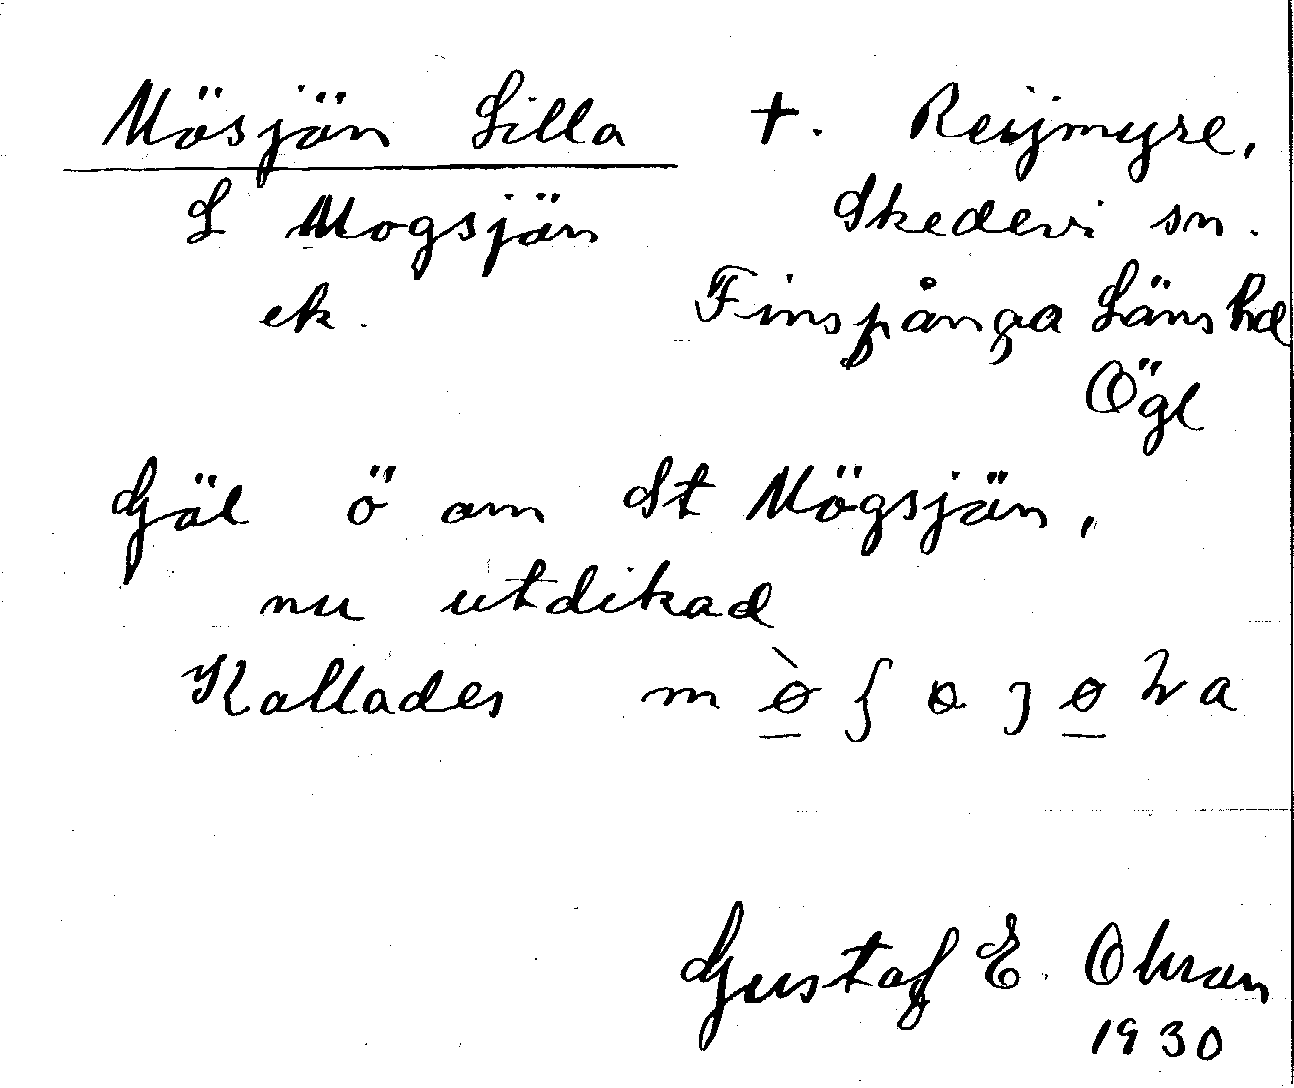 Mösjön Lilla †. Reijmyre,
L Mogsjön Skedevi sn.
ek. Finspånga Läns hd
Ögl
Göl ö om St Mögsjön,
nu utdikad
Kallades
Gustaf E.
1930